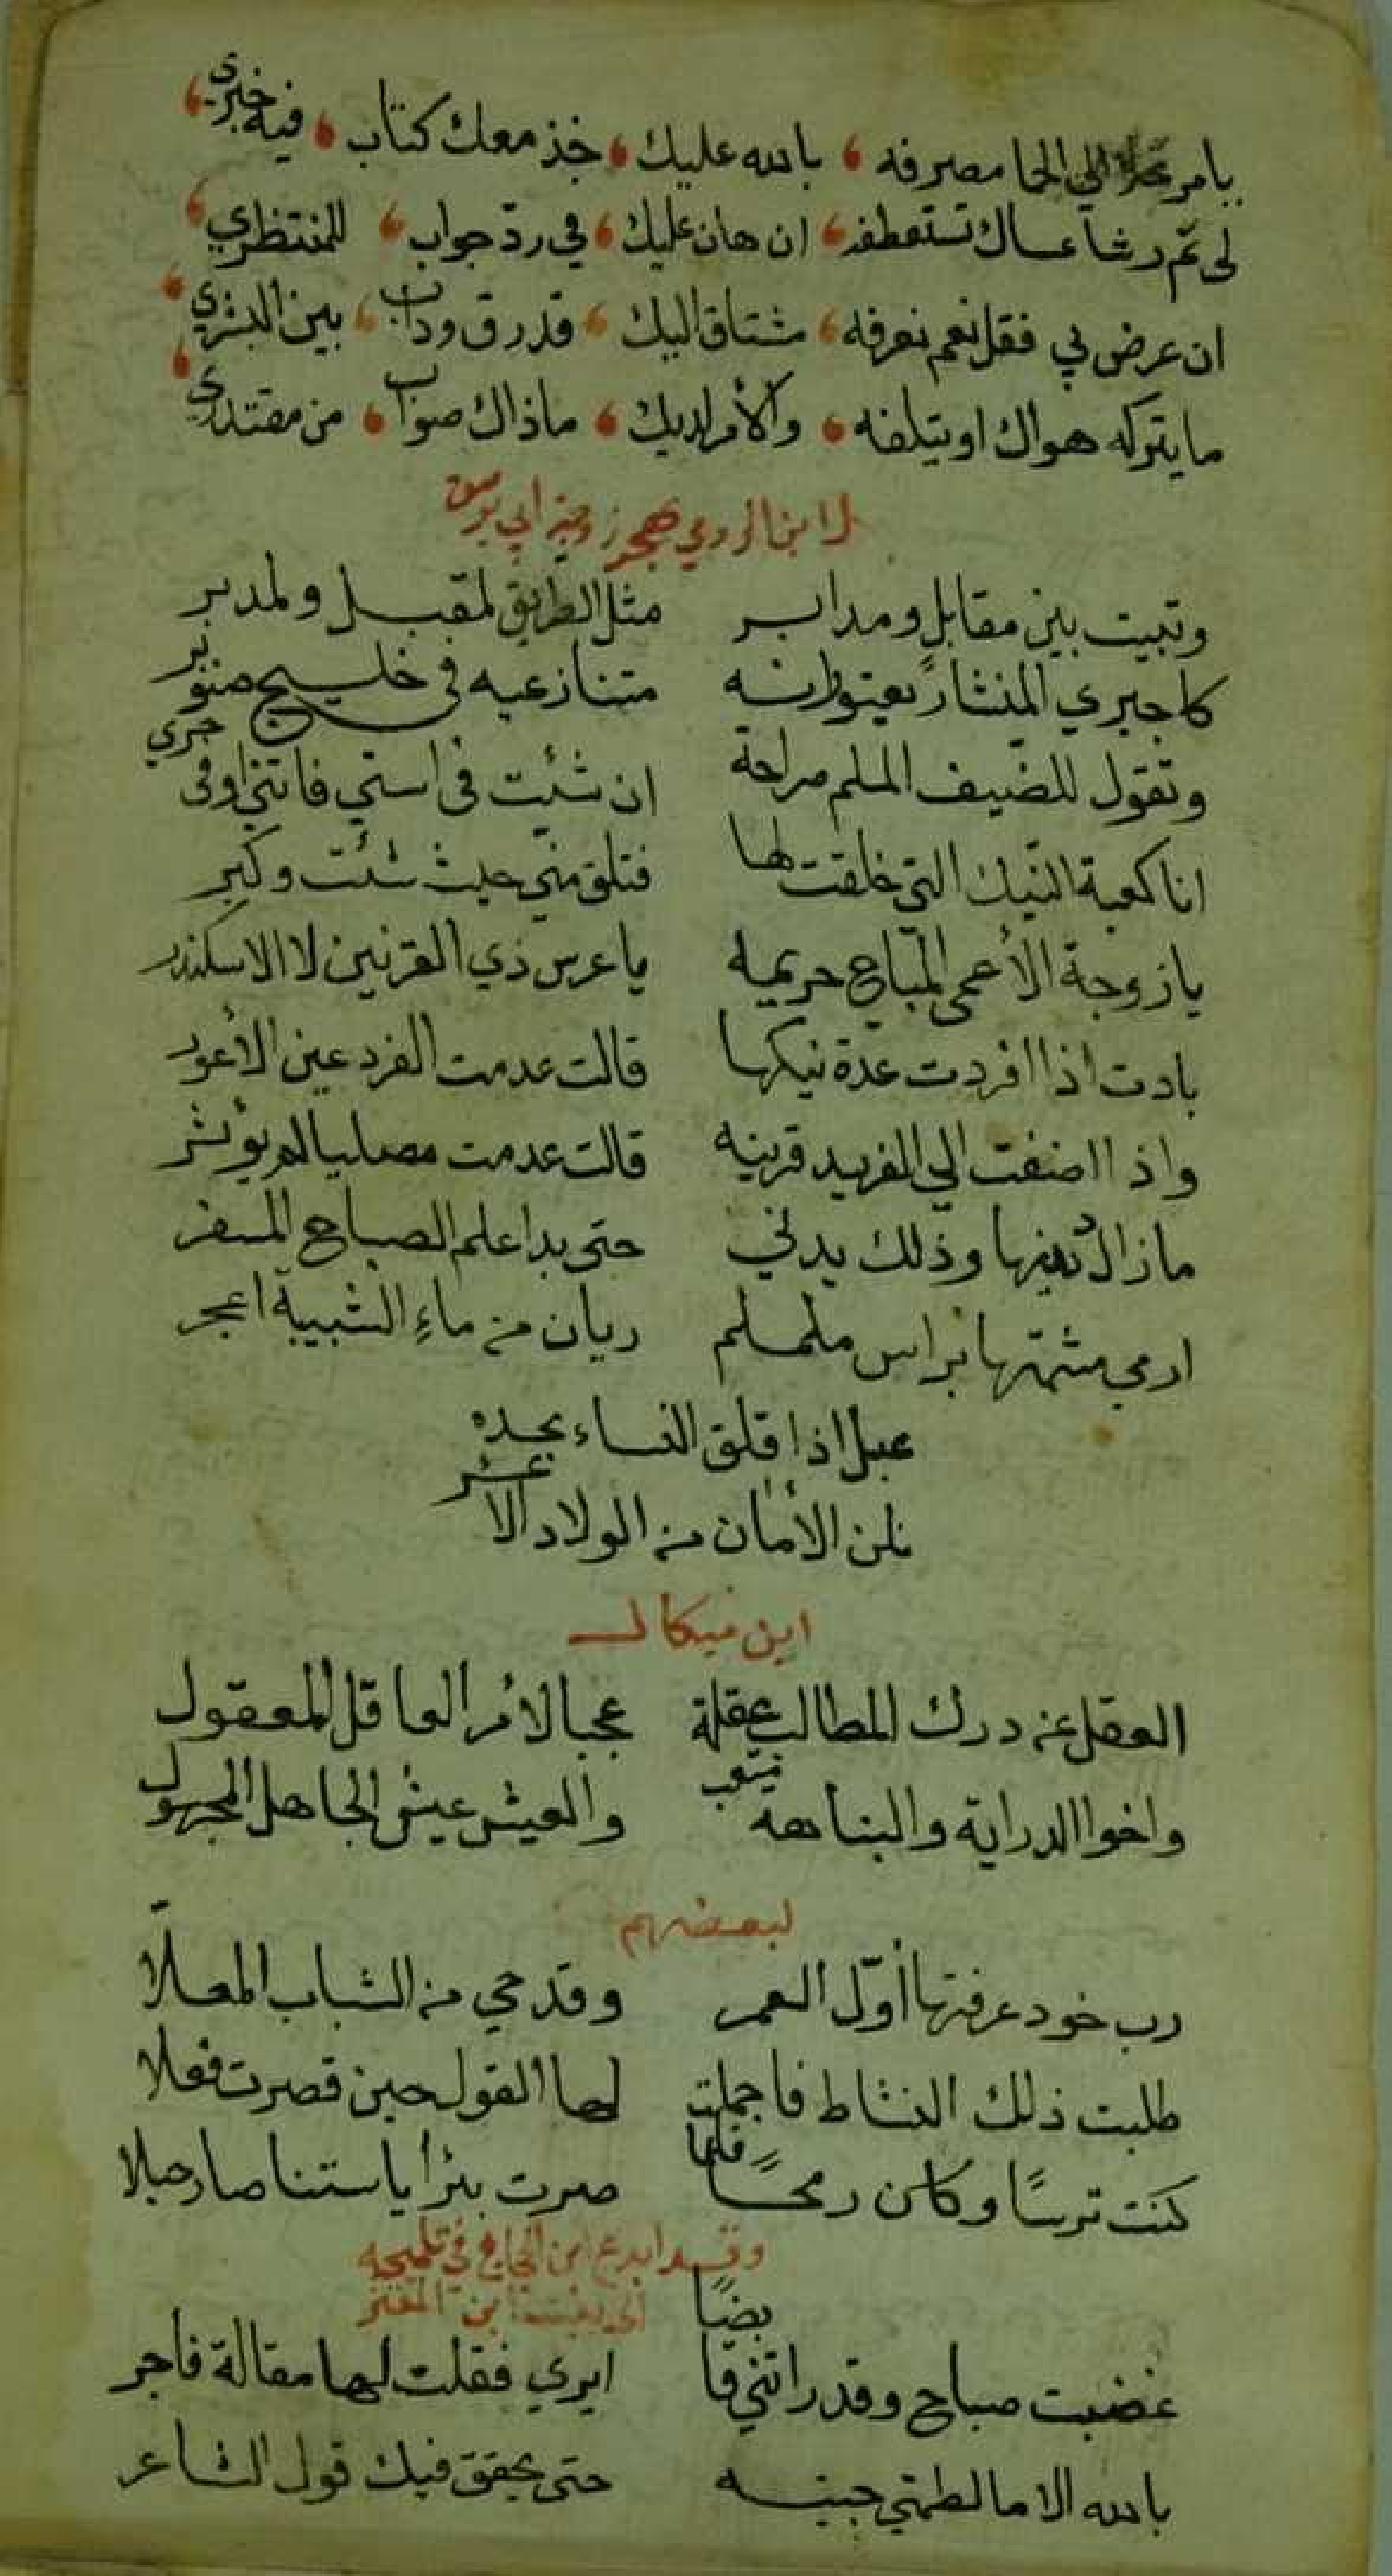 يامر الي الحما مصرفه بالله عليك خذ معك كتاب فيه خبري
لى ثم رشا عساك تستعطفه ان هان عليك في ردّ جواب للمنتظري
ان عرض بي فقل نعم نعرفه مشتاق اليك قد رق وداب بين البشري
ما يتركه هواك او يتلفه والأمر لديك ماذاك صواب من مقتدري
لابن الرومي
وتبيت بين مقابل ومدابر مثل الطريق لمقبل ولمدبر
كاجيري المنشار يعتورانه متنازعيه في خليج صنوبر
وتقول للضيف الملم مراحة ان شئت في استي فائتني او في حري
انا كعبة النيك التي خلقت لها فتلق مني حيث شئت وكبر
يا زوجة الأعمى المباع حريمه يا عرس ذي القرنين لا الاسكندر
بادت اذا افردت عدة نيكها قالت عدمت الفرد عين الأعور
واذا اضفت الي الفريد قرينه قالت عدمت مصليا لم يؤتر
ما زال وذلك يدني حتى بدا علم الصباح المسفر
ارمي مشمتها براس ململم ريان من ماءِ الشبيبة اعجر
عبل اذا قلق النساء بحده
نلن الأمان من الولاد الاعسر
ابن ميكال
العقل عن درك المطالب عقلة عجبا لأمر العاقل المعقول
واخوا الدراية والنباهة متعب والعيش عيش الجاهل المجهول
لبعضهم
رب خود عرفتها أوّل العمر وقدحي من الشباب المعلّا
طلبت ذلك النشاط فاجملت لها القول حين قصرت فعلا
كنت ترسًا وكان رمحًا فلما صرت بئرا يا ستنا صار حبلا
وقد ابدع ابن الحجاج في تلميحه
الى بيت ابن المعتز
غضبت صباح وقد راتني قابضًا ايري فقلت لها مقالة فاجر
بالله الا ما لطمتي جبينه حتى يحقق فيك قول الشاعر